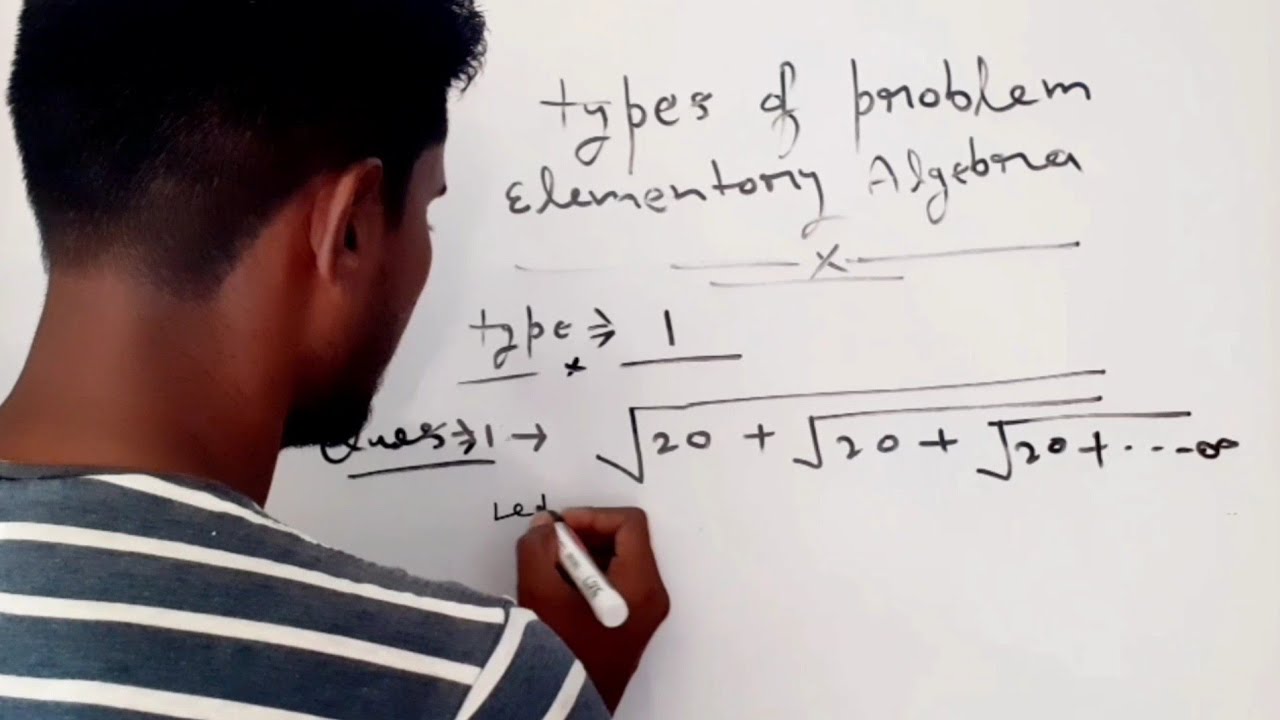 types of problem
Elementory Algebra
x
type ⇒ 1
Ques ⇒ 1 → √20 + √20 + √20 + ....∞
Let